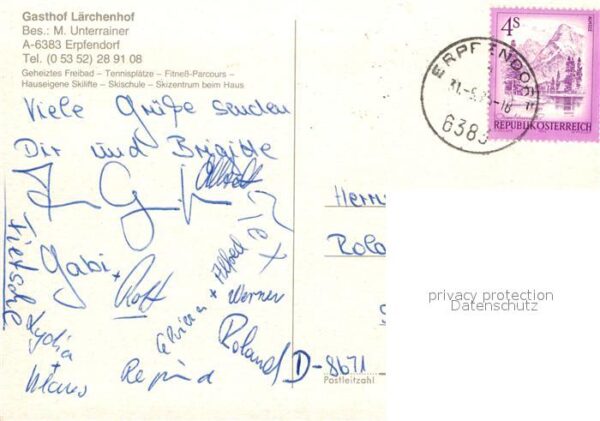 Gasthof Lärchenhof
Bes.: M. Unterrainer
A-6383 Erpfendorf
Tel. (0 53 52) 28 91 08
Geheiztes Freibad – Tennisplätze – Fitneß-Parcours –
Hauseigene Skilifte – Skischule – Skizentrum beim Haus
4S
ERPFENDORF
6383
REPUBLIK ÖSTERREICH
Viele Grüße senden
Dir und Brigitte
Gabi +
Rolf
Alfred
Werner
Lydia
+
Klaus
Roland
Herrn
Rola
D-8671
Postleitzahl
privacy protection
Datenschutz